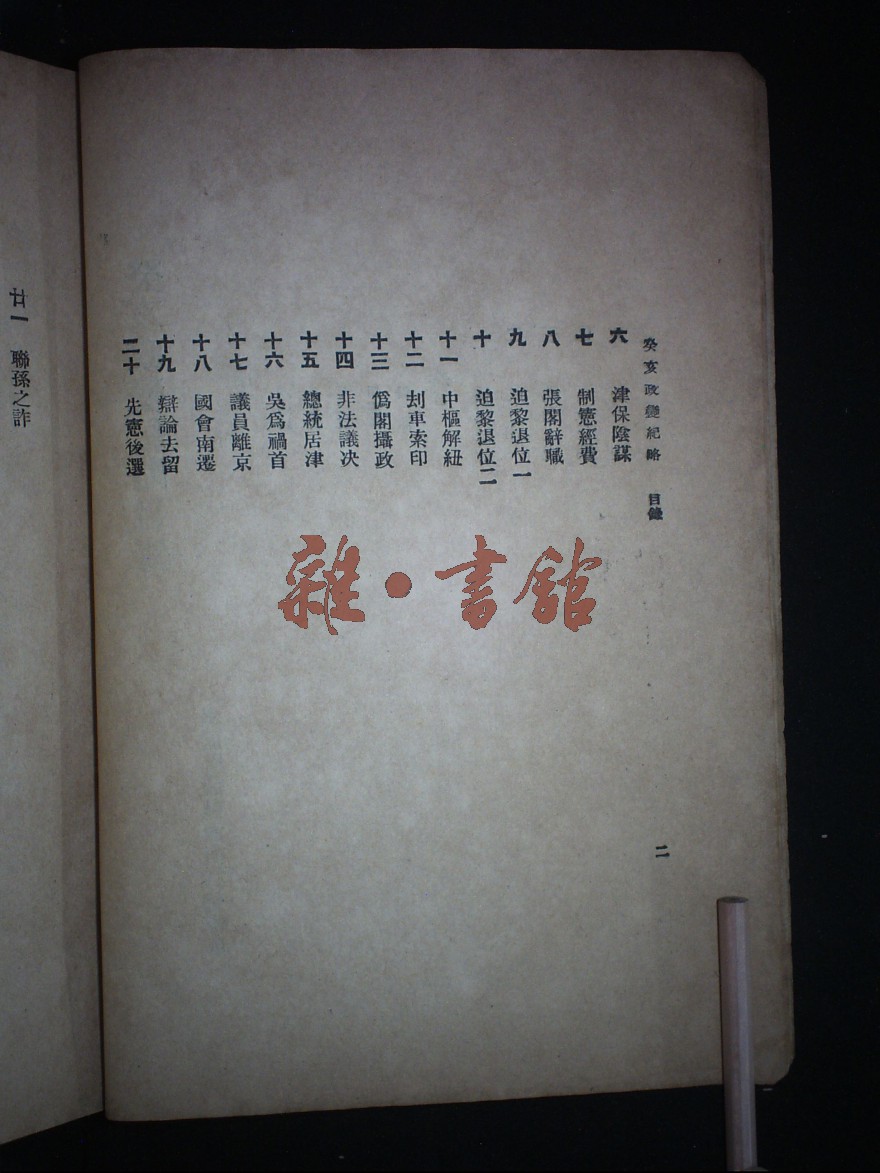 癸亥政變紀略 目錄
二
六 津保陰謀
七 制憲經費
八 張閣辭職
九 迫黎退位一
十 迫黎退位二
十一 中樞解紐
十二 刦車索印
十三 僞閣攝政
十四 非法議决
十五 總統居津
十六 吳爲禍首
十七 議員離京
十八 國會南遷
十九 辯論去留
二十 先憲後選
廿一 聯孫之詐
雜·書館